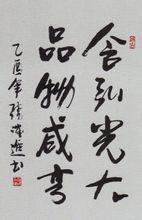 含弘光大
品物咸亨
乙酉年張海遊书